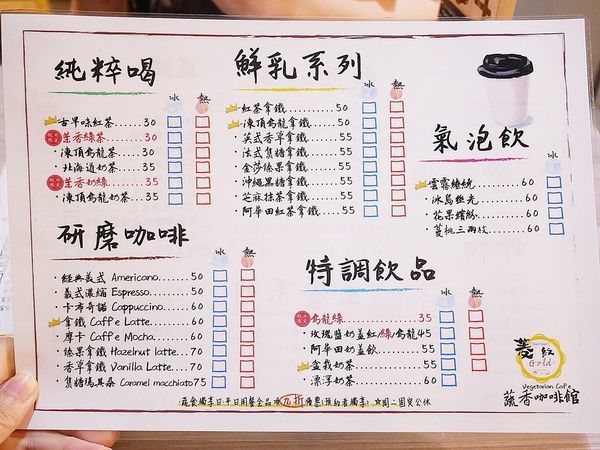 純粹喝
冰 熱
古早味紅茶......30
茉香綠茶......30
凍頂烏龍茶......30
北海道奶茶......35
茉香奶綠......35
凍頂烏龍奶茶...35
鮮乳系列
冰 熱
紅茶拿鐵......50
凍頂烏龍拿鐵......50
英式香草拿鐵......55
法式焦糖拿鐵......55
金莎榛果拿鐵......55
沖繩黑糖拿鐵......55
芝麻抹茶拿鐵......55
阿華田紅茶拿鐵...55
氣泡飲
冰
雲霧繚繞......60
冰島極光......60
花果繽紛......60
蔓桃三兩枝......60
研磨咖啡
冰 熱
經典美式 Americano.......50
義式濃縮 Espresso........50
卡布奇諾 Cappuccino......60
拿鐵 Caff'e Latte.........60
摩卡 Caff'e Mocha........60
榛果拿鐵 Hazelnut latte...70
香草拿鐵 Vanilla Latte....70
焦糖瑪其朵 Caramel macchiato 75
特調飲品
冰 熱
烏龍綠......35
玫瑰鹽奶蓋紅/綠/烏龍45
阿華田奶蓋飲......55
盆栽奶茶......55
漂浮奶茶......60
菱紋
Gold
Vegetarian Caf'e
蔬香咖啡館
蔬食獨享日平日用餐全品項九折優惠(預約者獨享) 週二固定公休